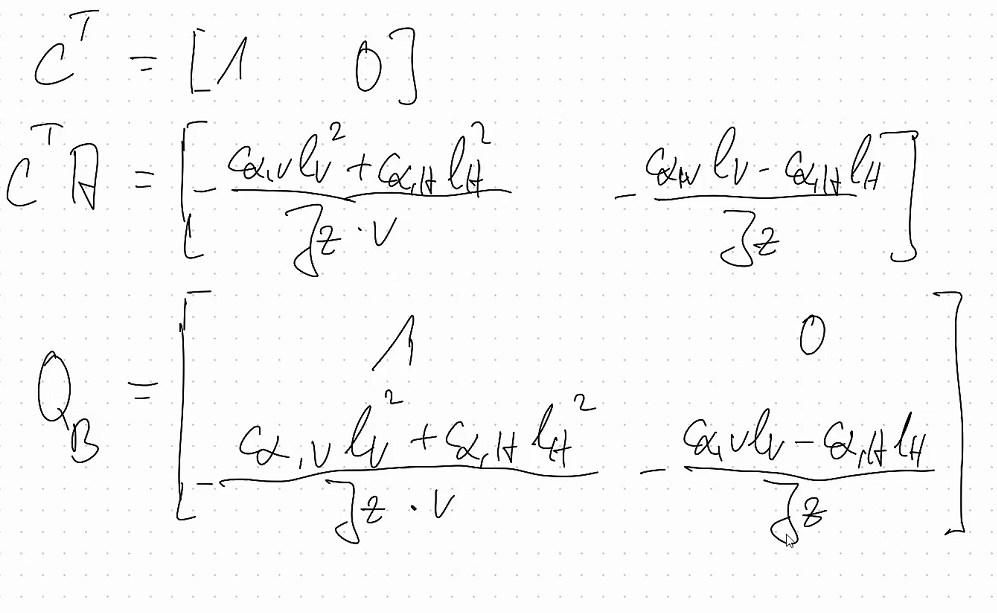 c^T = [1 0]
c^T A = [-\frac{c_{α,V} l_V^2 + c_{α,H} l_H^2}{J_z · v} -\frac{c_{α,V} l_V - c_{α,H} l_H}{J_z}]
Q_B = [1 0
-\frac{c_{α,V} l_V^2 + c_{α,H} l_H^2}{J_z · v} -\frac{c_{α,V} l_V - c_{α,H} l_H}{J_z}]